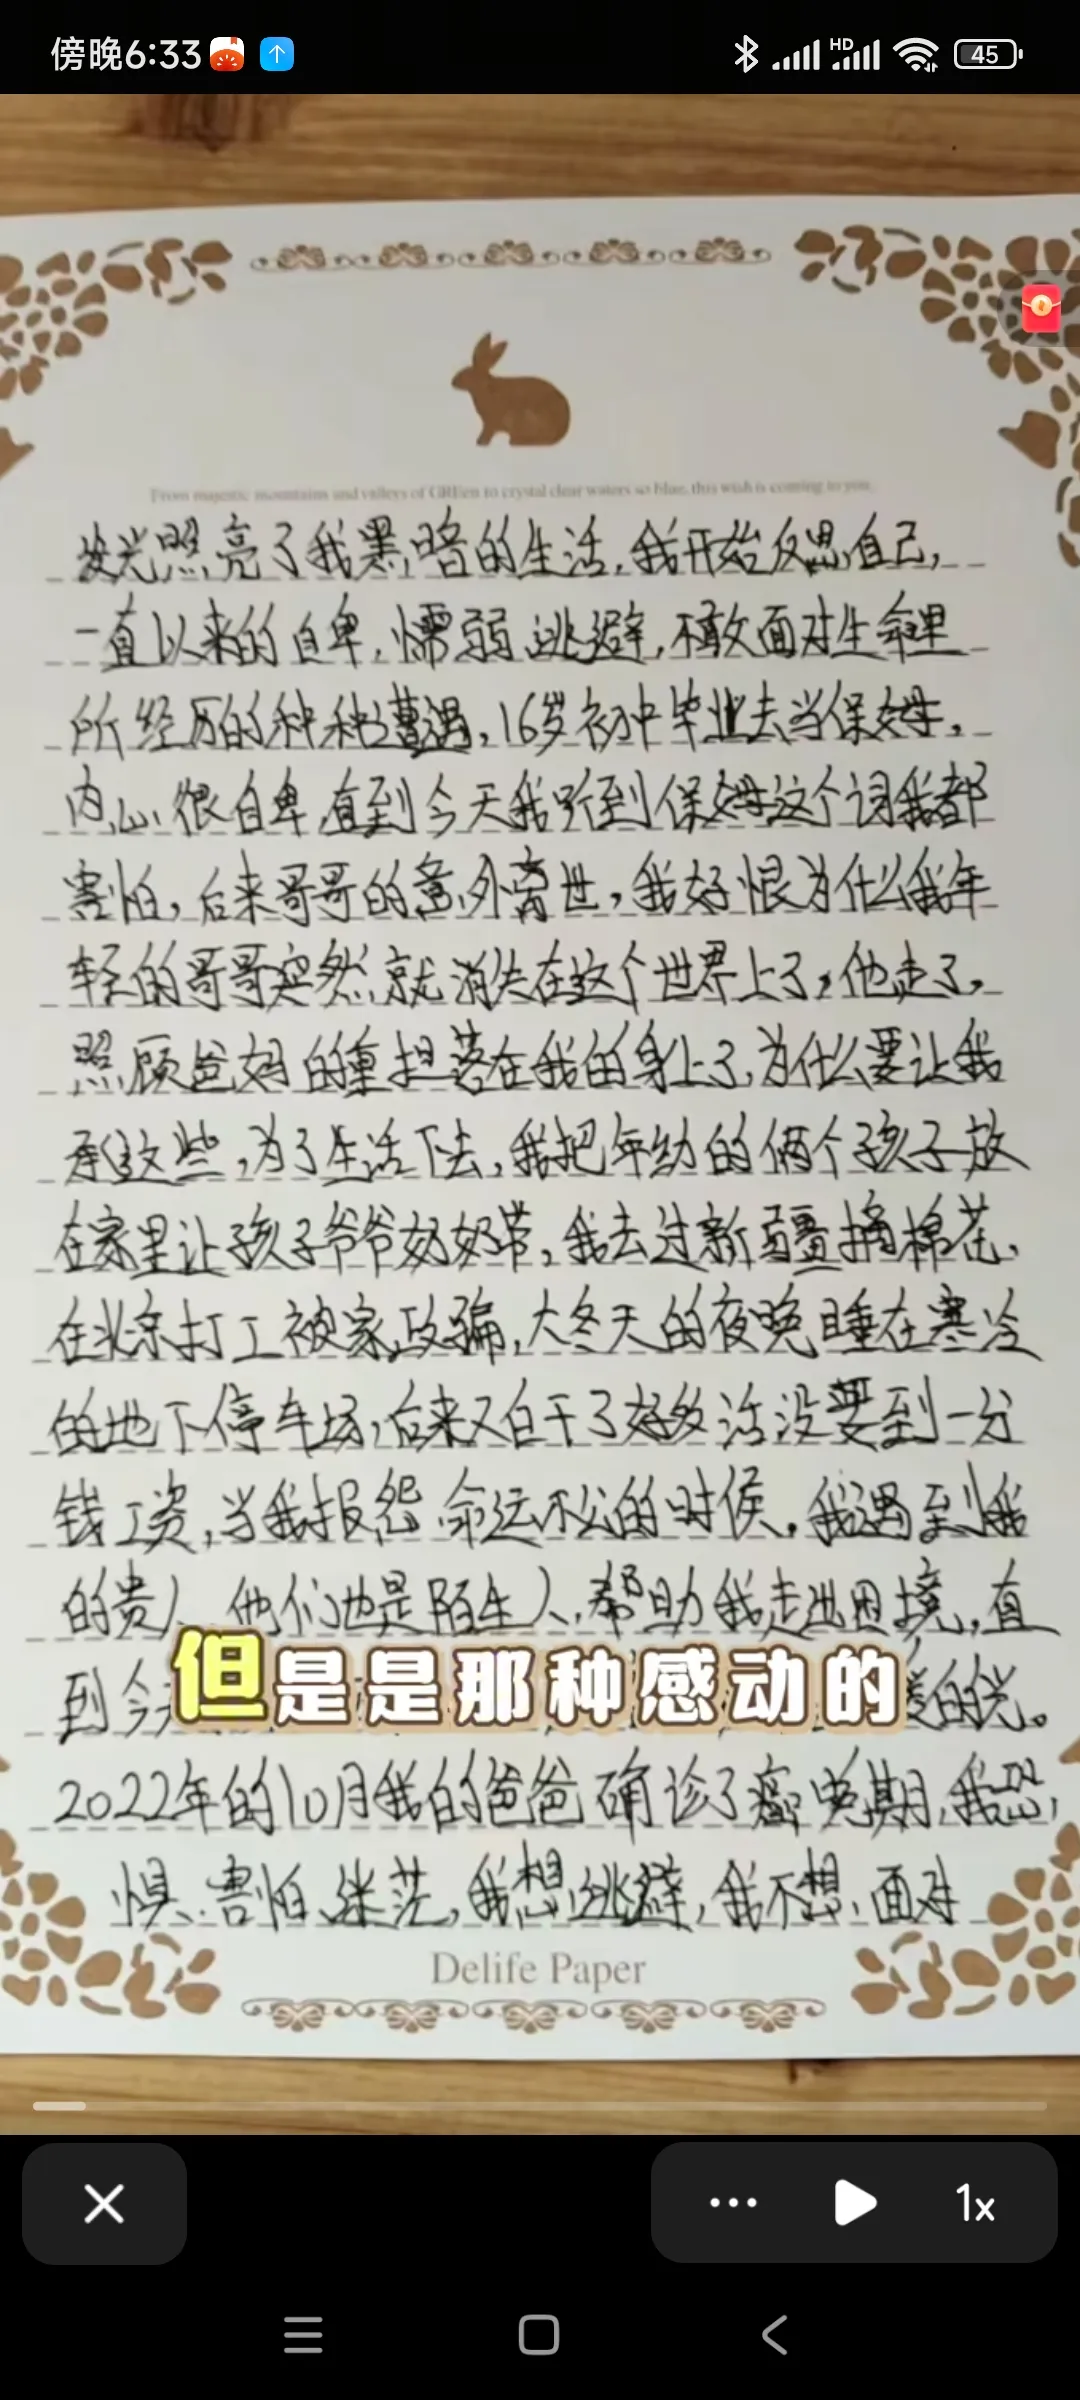 傍晚6:33
HD
45
From majestic mountains and valleys of GREen to crystal clear waters so blue, this wish is coming to you.
发光照亮了我黑暗的生活,我开始反思自己,
一直以来的自卑,懦弱逃避,不敢面对生命里
所经历的种种遭遇,16岁初中毕业去当保姆,
内心很自卑,直到今天我听到保姆这个词我都
害怕,后来哥哥的意外离世,我好恨为什么我年
轻的哥哥突然就消失在这个世界上了,他走了,
照顾爸妈的重担落在我的身上了,为什么要让我
承这些,为了生活下去,我把年幼的俩个孩子放
在家里让孩子爷爷奶奶带,我去过新疆摘棉花,
在北京打工被家政骗,大冬天的夜晚睡在寒冷
的地下停车场,后来又白干了好多活没要到一分
钱工资,当我报怨命运不公的时候,我遇到我
的贵人,他们也是陌生人,帮助我走出困境,直
到今 的光。
但是是那种感动的
2022年的10月我的爸爸确诊了癌晚期,我恐
惧、害怕、迷茫,我想逃避,我不想面对
Delife Paper
1x